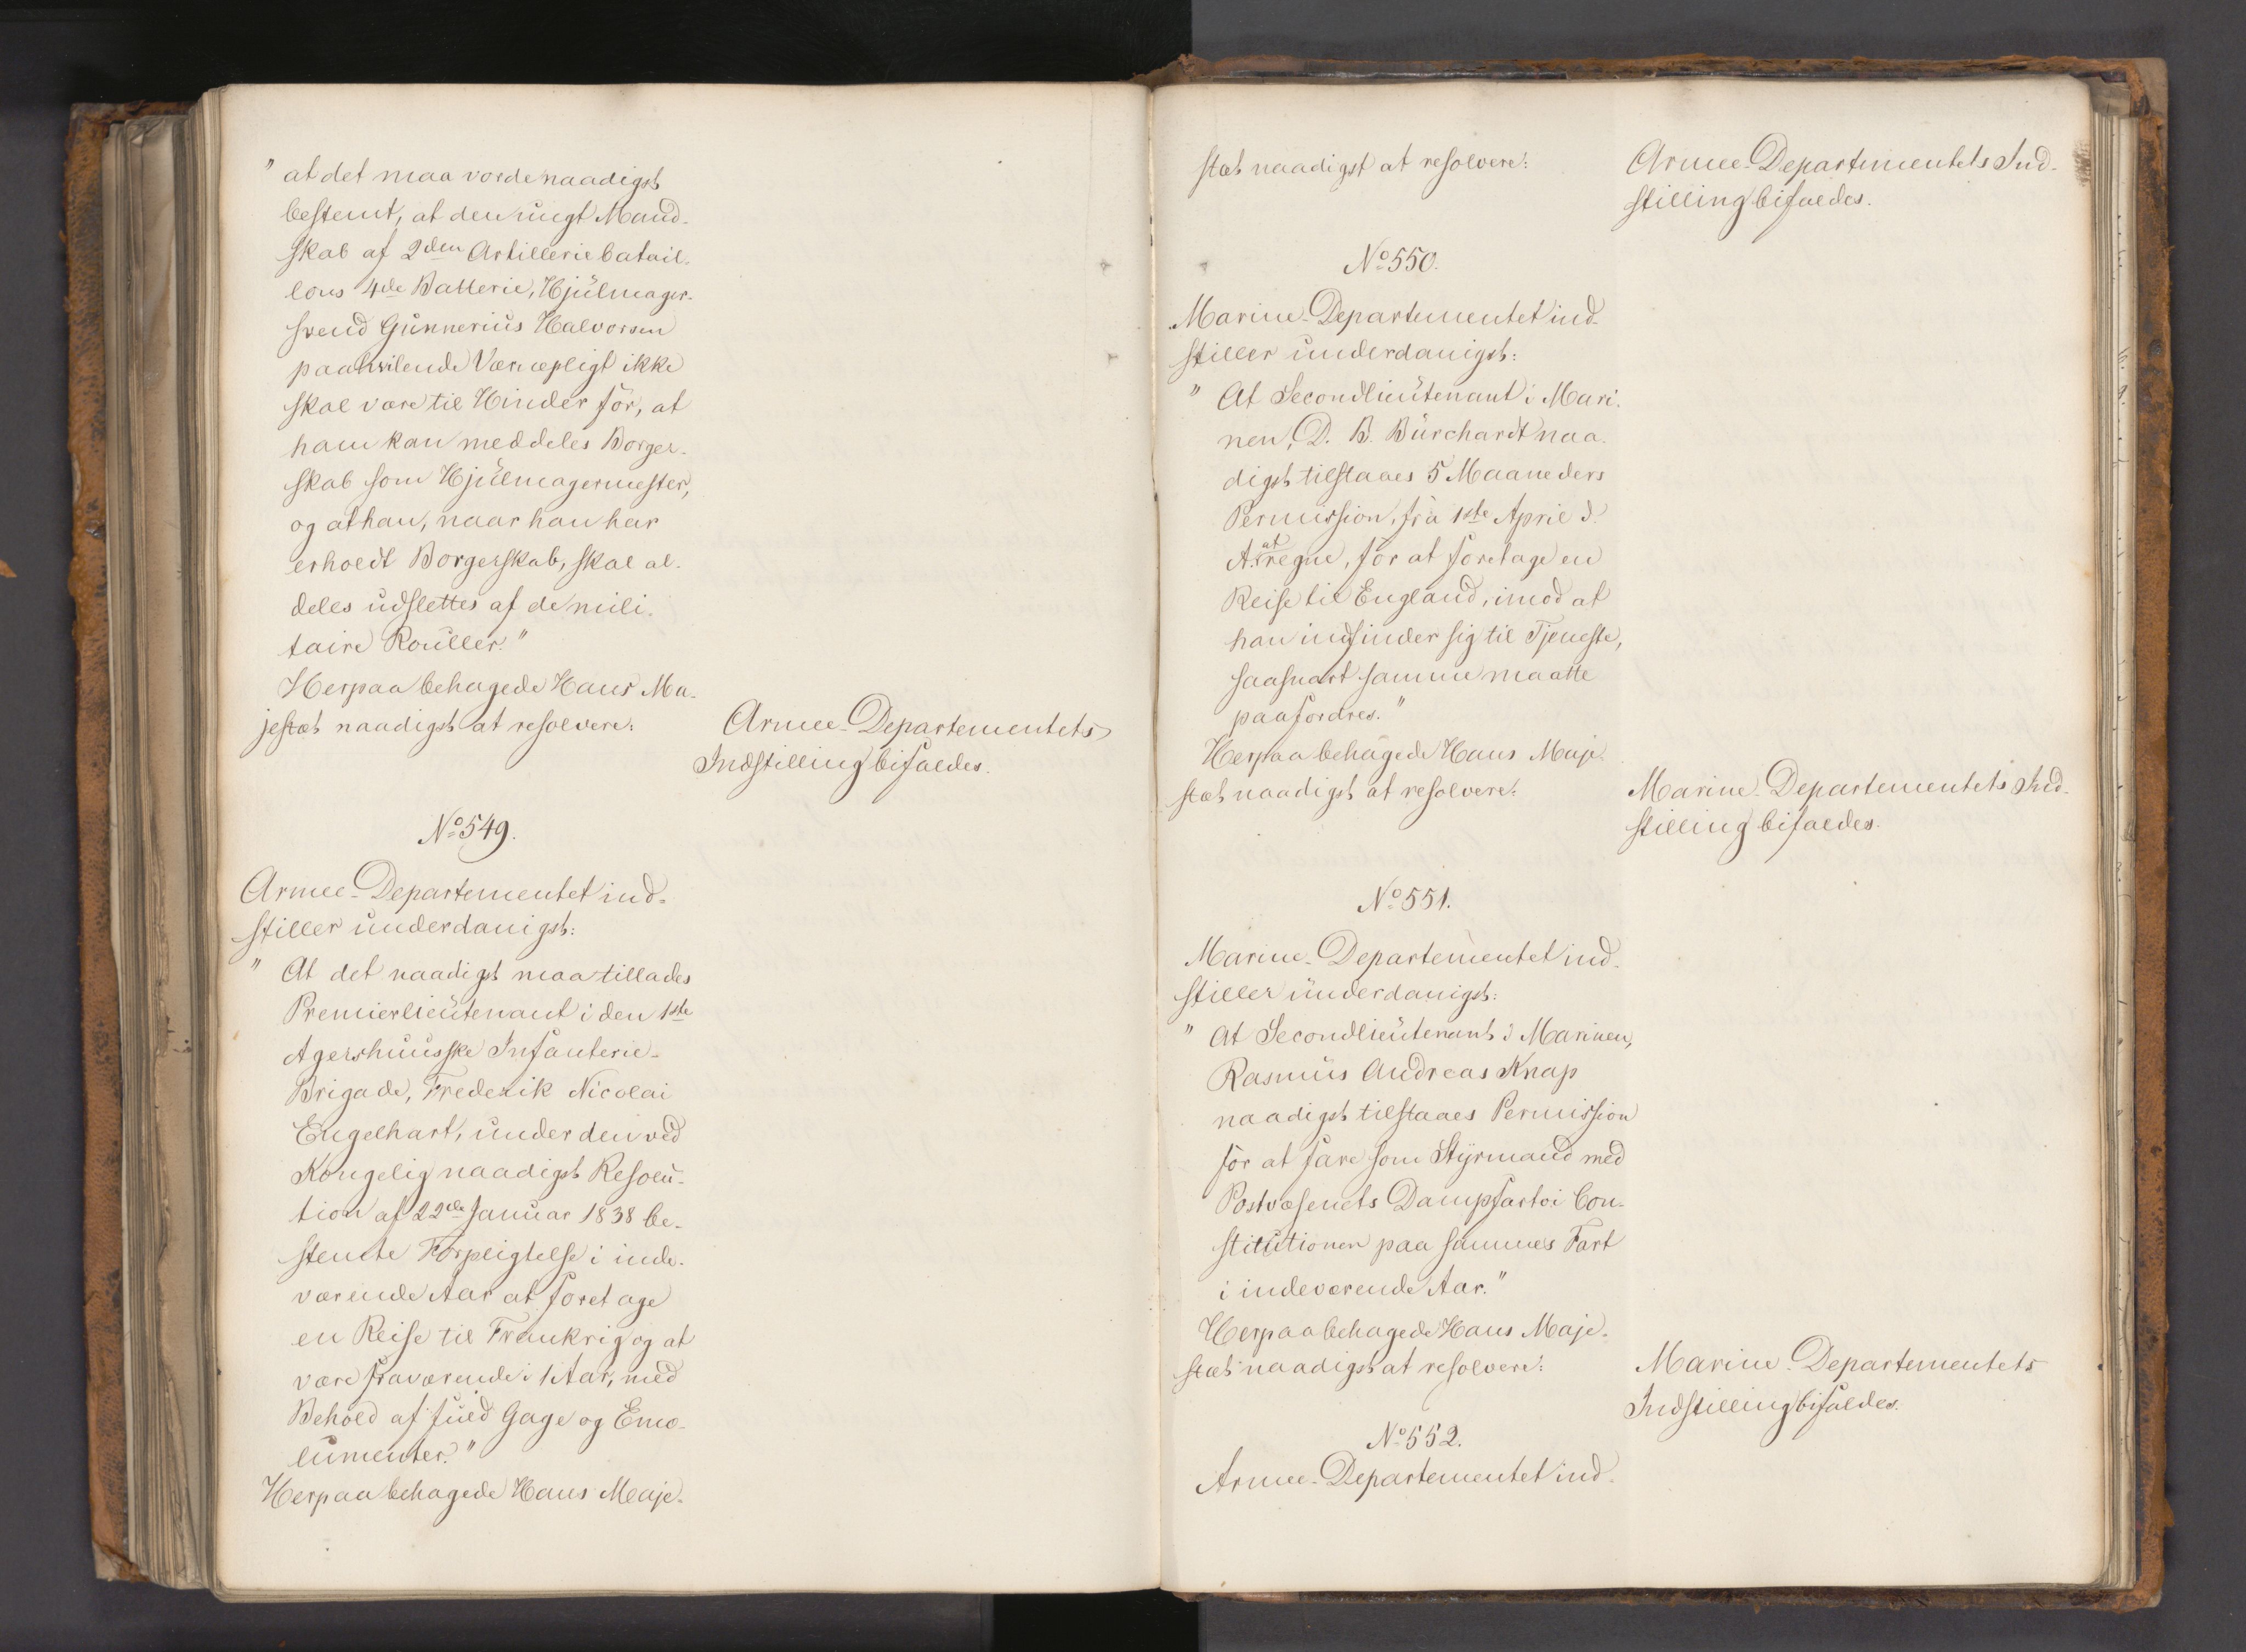 " at det maa vorde naadigst
bestemt, at den ungt Mand-
skab af 2den Artilleriebatail-
lons 4de Batterie, Hjülmager-
svend Gunnerius Halvorsen
paahvilende Værnepligt ikke
skal være til Hinder for, at
ham kan meddeles Borger-
skab som Hjülmagermester,
og at han, naar han har
erholdt Borgerskab, skal al-
deles udslettes af de mili-
taire Rouller."
Herpaa behagede Hans Ma-
jestæt naadigst at resolvere:
Armee-Departementets
Indstilling bifaldes.
No 549.
Armee-Departementet ind-
stiller underdanigst:
" At det naadigst maa tillades
Premierlieutenant i den 1ste
Agershuusske Infanterie-
Brigade, Frederik Nicolai
Engelhart, under den ved
Kongelig naadigst Resolu-
tion af 22de Januar 1838 be-
stemte Forpligtelse i inde-
værende Aar at foretage
en Reise til Frankrig og at
være fraværende i 1 Aar, med
Behold af fuld Gage og Emo-
lumenter."
Herpaa behagede Hans Maje-
stæt naadigst at resolvere:
Armee-Departementets Ind-
stilling bifaldes.
No 550.
Marine-Departementet ind-
stiller underdanigst:
" At Secondlieutenant i Mari-
nen, D. B. Burchardt naa-
digst tilstaaes 5 Maaneders
Permission, fra 1ste April d.
A. at regne, for at foretage en
Reise til England, imod at
han indfinder sig til Tjeneste,
saasnart samme maatte
paafordres."
Herpaa behagede Hans Maje-
stæt naadigst at resolvere:
Marine-Departementets Ind-
stilling bifaldes.
No 551.
Marine-Departementet ind-
stiller underdanigst:
" At Secondlieutenant i Marinen,
Rasmus Andreas Knap
naadigst tilstaaes Permission
for at fare som Styrmand med
Postvæsenets Dampfartøi Con-
stitutionen paa sammes Fart
i indeværende Aar."
Herpaa behagede Hans Maje-
stæt naadigst at resolvere:
Marine-Departementets
Indstilling bifaldes.
No 552.
Armee-Departementet ind-